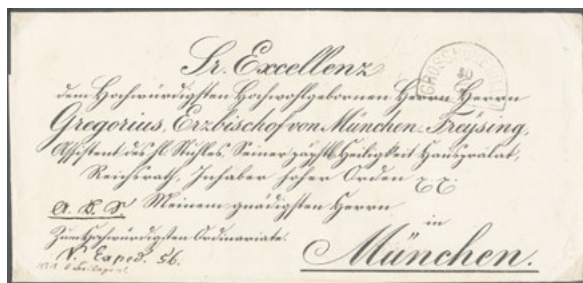 Sr. Excellenz
dem Hochwürdigsten Hochwohlgebornen Herrn Herrn
Gregorius, Erzbischof von München-Freysing,
Assistent des hl. Stuhles, Seiner päpstl. Heiligkeit Hausprälat,
Reichsrath, Inhaber hoher Orden
Meinem gnädigsten Herrn
in
Zum Hochwürdigsten Ordinariate.
München.
N. Exped. 56.
GROSS